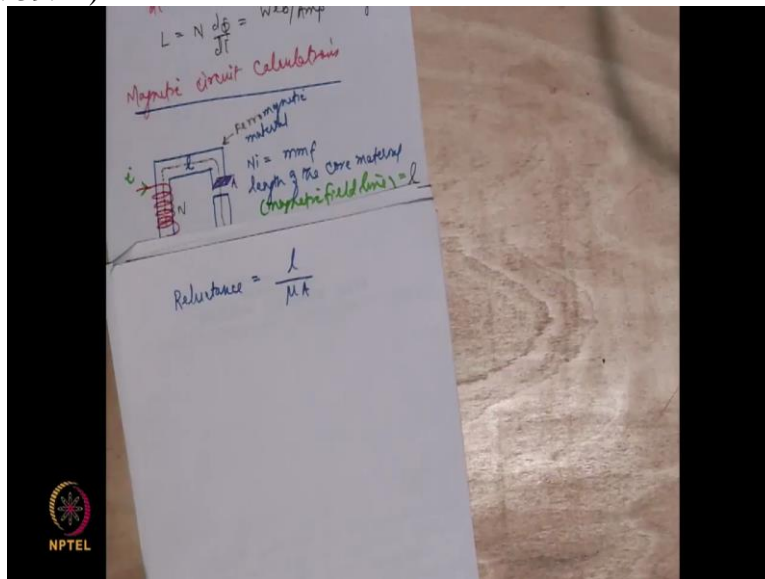 L = N dφ/di = Web/Amp
Magnetic circuit calculations
Ferromagnetic
material
l
i
Ni = mmf
A
length of the core material
N
(magnetic field line) = l
Reluctance = l/μA
NPTEL